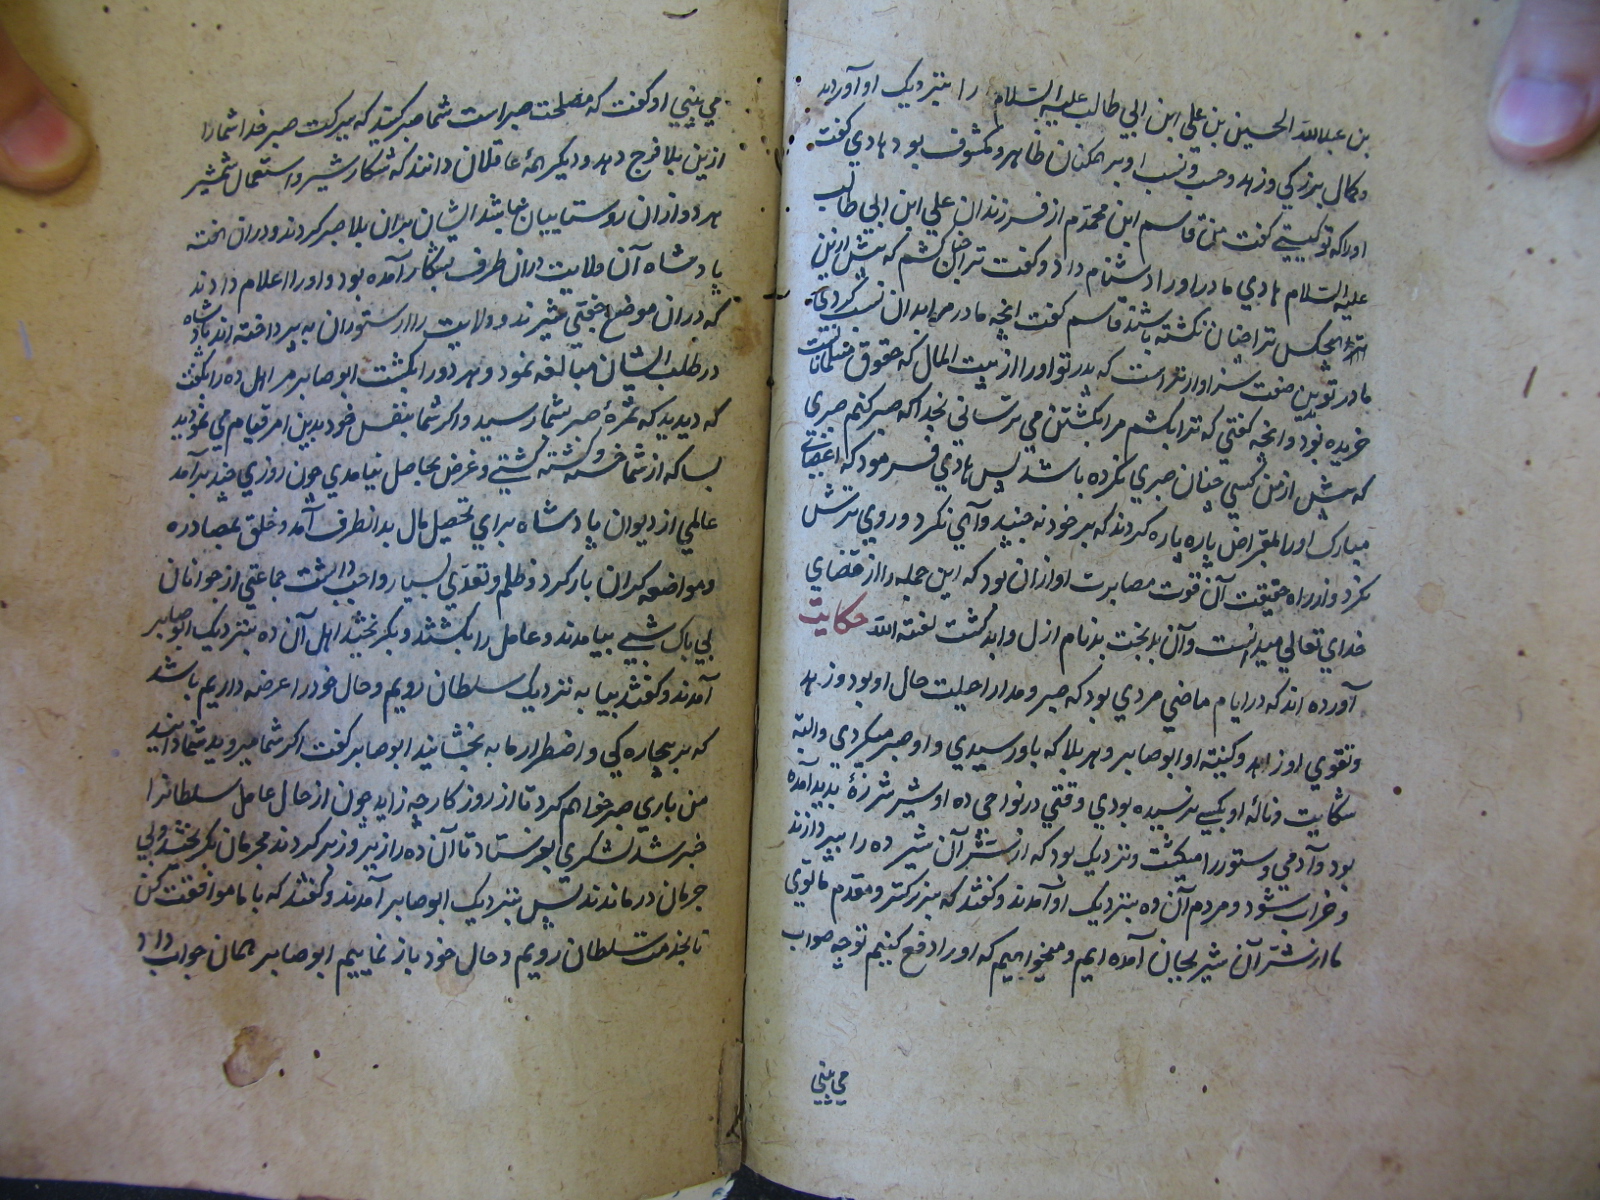 بن عبدالله الحسین بن علي ابن ابي طالب علیه السلام را بنزدیک او آوردند
و کمال بزرکي و زهد و حسب و نسب او بر همکنان ظاهر و مکشوف بود هادي کفت
اورا که تو کیستے کفت من قاسم ابن محمدم از فرزندان علي ابن ابي طالب
علیه السلام هادي مادر اورا دشنام داد و کفت ترا چنان کشم که پیش ازین
هیچکس ترا چنان نکشته باشند قاسم کفت انچه مادر مرا بدان نسب کردي
مادر تو بدین صفت سزاوارتر است که پدر تو اورا از بیت المال که حقوق مسلمانانست
خریده بود و انچه کفتي که ترا بکشم مرا بکشتن مي ترساني بخدا که صبر کنم صبري
که پیش از من کسي چنان صبري نکرده باشد پس هادي فرمود که اعضاي
مبارک اورا بمقراض پاره پاره کردند که بر خود نه جنبید و آهي نکرد و روي ترش
نکرد و از راه حقیقت آن قوت مصابرت او ازان بود که این جمله را از قضاي
خداي تعالي میدانست و آن بدبخت بدنام ازل و ابد کشت لعنه الله حکایت
آورده اند که در ایام ماضي مردي بود که صبر و مدارا حیلت حال او بود و زهد
و تقوي او زاهد و کنیته او ابوصابر و هر بلا که باو رسیدي و او صبر میکردي و البته
شکایت و نالهٔ او بکسے نرسیده بودي وقتي در نواحي ده او شیر شرزهٔ پدید آمده
بود و آدمي و ستور را میکشت و نزدیک بود که از شر آن شیر ده را بپردازند
و خراب شود و مردم آن ده بنزدیک او آمدند و کفتند که بزرکتر و مقدم ما توي
ما از شر آن شیر بجان آمده ایم و میخواهیم که اورا دفع کنیم تو چه صواب
مي بیني
مي بیني او کفت که مصلحت صبر است شما صبر کنید که ببرکت صبر خدا شمارا
ازین بلا فرج دهد و دیکر همهٔ عاقلان دانند که شکار شیر و استعمال شمشیر
هر دو ازان روستاییان نباشد ایشان بران بلا صبر کردند و دران هفته
پادشاه آن ولایت دران طرف بشکار آمده بود و اورا اعلام دادند
که دران موضع جفتي شیرند و ولایت را از ستوران به پرداخته اند پادشاه
در طلب ایشان مبالغه نمود و هر دو را بکشت ابوصابر مر اهل ده را کفت
که دیدید که ثمرهٔ صبر شما رسید و اکر شما بنفس خود بدین امر قیام مي نمودید
بسا که از شما خسته و کشته کشتے و غرض بحاصل نیامدي چون روزي چند برآمد
عاملي از دیوان پادشاه براي تحصیل مال بدانطرف آمد و خلق بمصادره
و مواضعه کران بار کرد و ظلم و تعدي بسیار واجب داشت جماعتي از جوانان
بي باک شبے بیامدند و عامل را بکشتند و بکریختند اهل آن ده بنزدیک ابوصابر
آمدند و کفتند بیا به نزدیک سلطان رویم و حال خود را عرضه داریم باشد
که بر بیچاره کي و اضطرار ما به بخشایند ابوصابر کفت اکر شما میروید شما دانید
من باري صبر خواهم کرد تا از روز کار چه زاید چون از حال عامل سلطانرا
خبر شد لشکري بفرستاد تا آن ده را زیر و زبر کردند مجرمان بکریختند و بي
جرمان درماندند پس بنزدیک ابوصابر آمدند و کفتند که با ما موافقت کن
تا بخدمت سلطان رویم و حال خود باز نماییم ابوصابر همان جواب داد